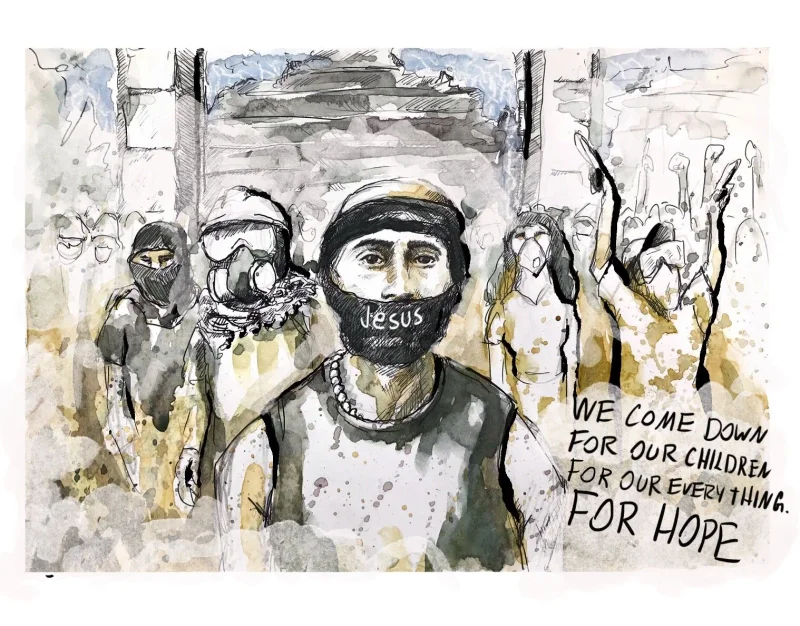 Jesus
WE COME DOWN
FOR OUR CHILDREN
FOR OUR EVERYTHING.
FOR HOPE